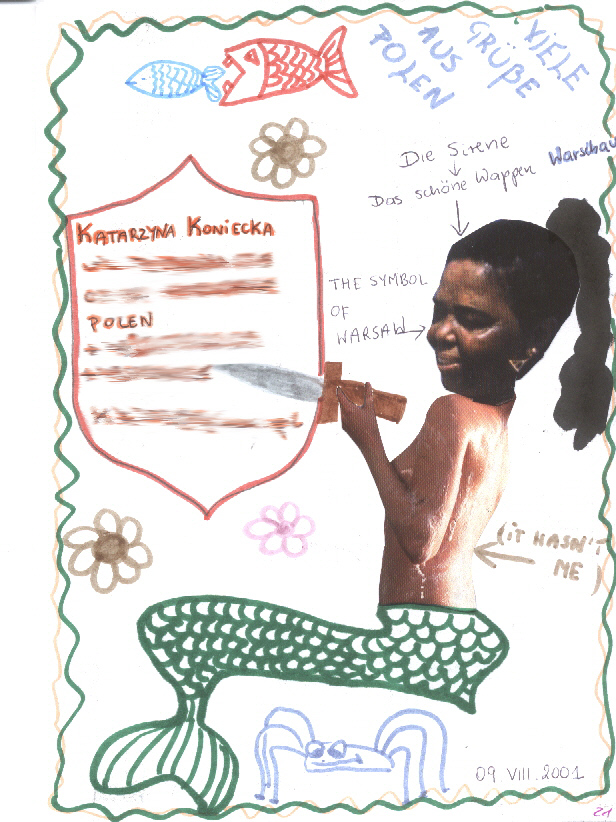 VIELE
GRÜßE
AUS
POLEN
Die Sirene
Das schöne Wappen Warschau
KATARZYNA KONIECKA
POLEN
THE SYMBOL
OF
WARSAW
(IT HASN'T
ME)
09 VIII.2001
21